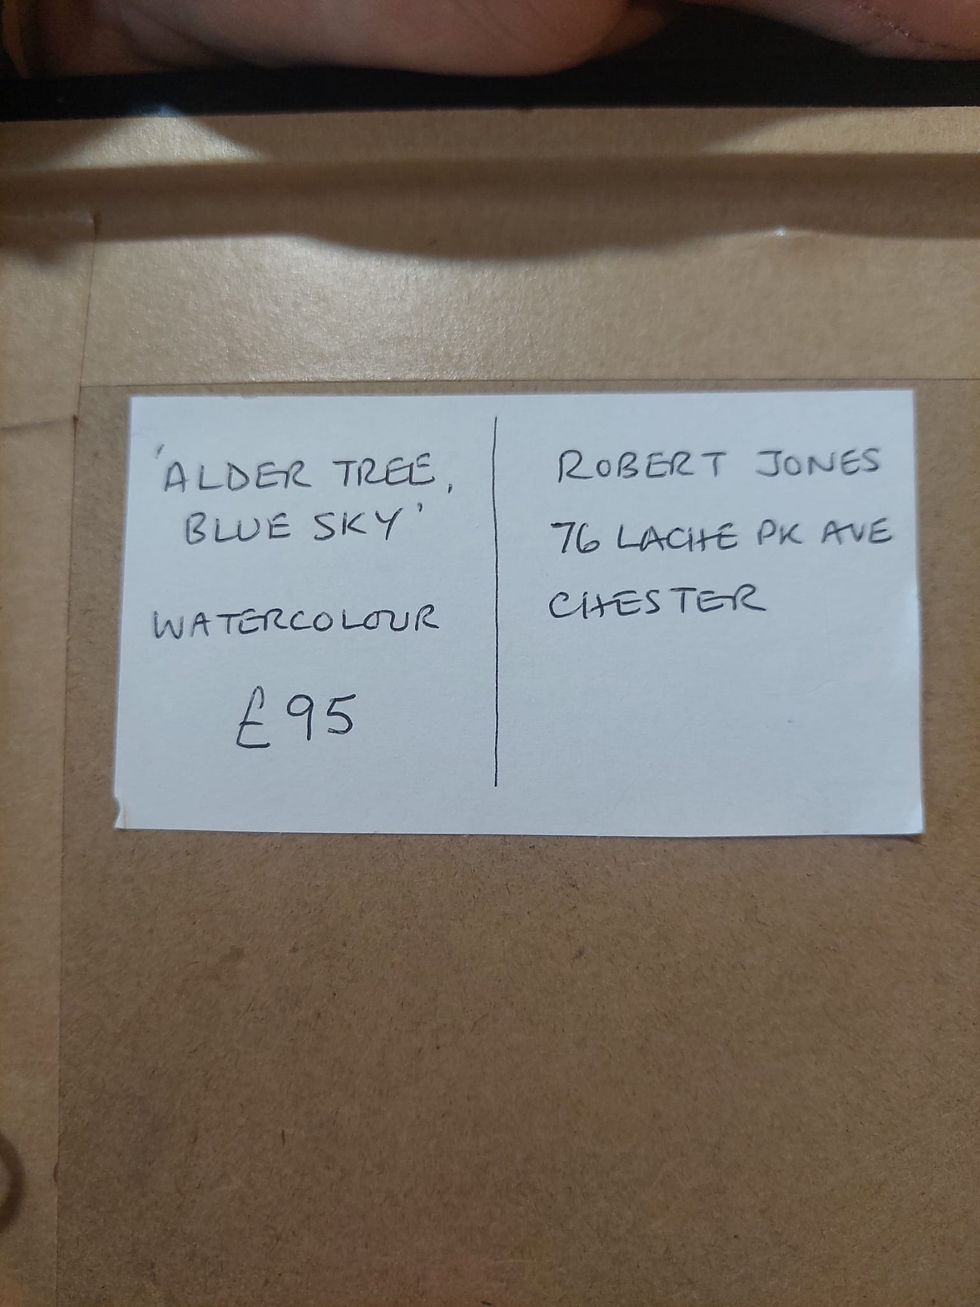 'ALDER TREE,
BLUE SKY'
WATERCOLOUR
£95
ROBERT JONES
76 LACHE PK AVE
CHESTER